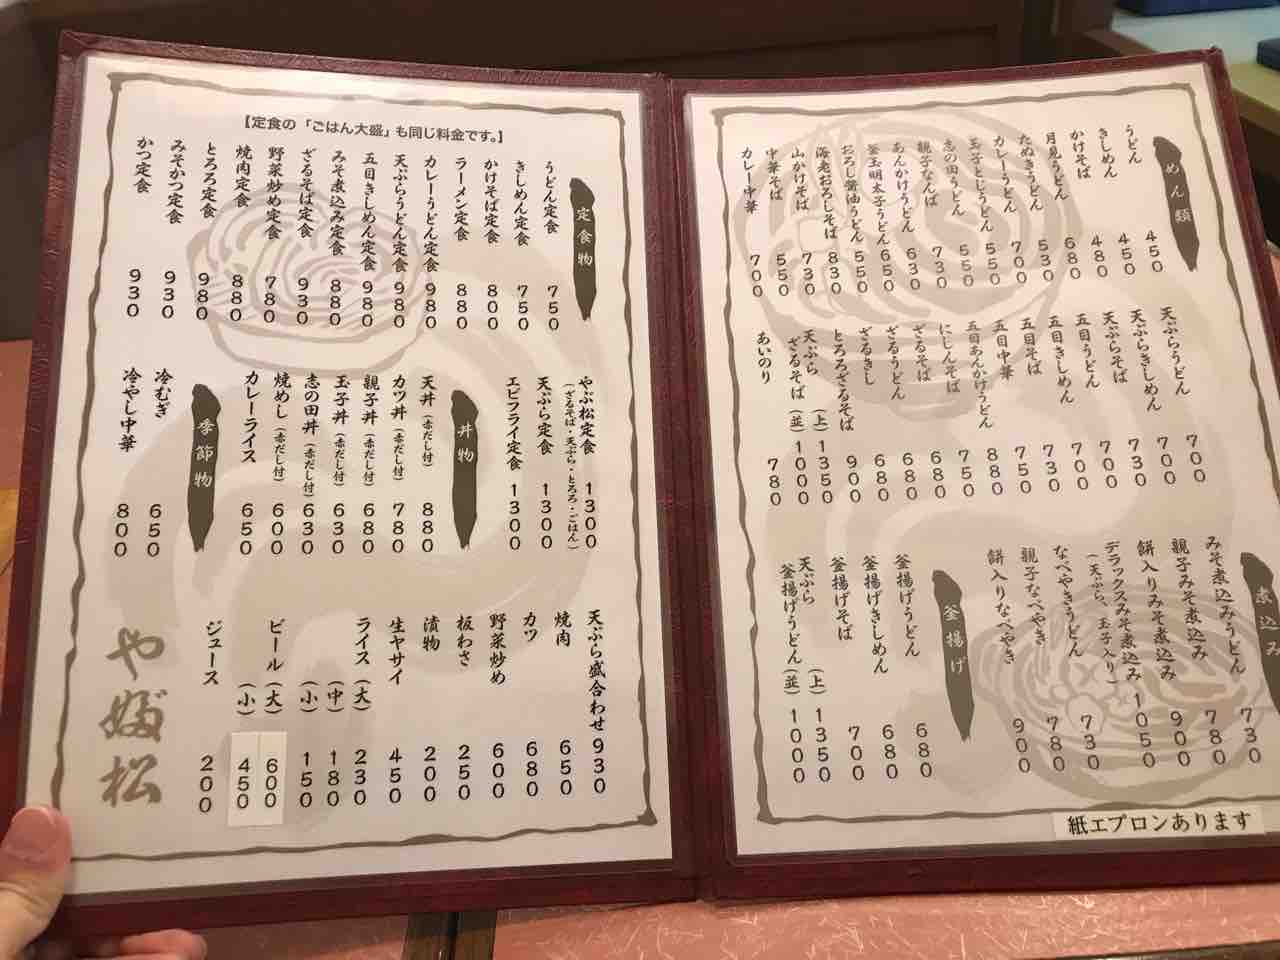 めん類
うどん 450
きしめん 450
かけそば 480
月見うどん 680
たぬきうどん 530
カレーうどん 700
玉子とじうどん 550
志の田うどん 550
親子なんば 730
あんかけうどん 630
釜玉明太子うどん 650
おろし醤油うどん 550
海老おろしそば 830
山かけそば 730
中華そば 550
カレー中華 700
天ぷらうどん 700
天ぷらきしめん 700
天ぷらそば 730
五目うどん 700
五目きしめん 700
五目そば 730
五目中華 750
五目あんかけうどん 880
にしんそば 750
ざるそば 680
ざるうどん 680
ざるきし 680
とろろざるそば 900
天ぷら (上) 1350
ざるそば (並) 1000
あいのり 780
煮込み
みそ煮込みうどん 730
親子みそ煮込み 780
餅入りみそ煮込み 900
デラックスみそ煮込み 1050
(天ぷら、玉子入り)
なべやきうどん 730
親子なべやき 780
餅入りなべやき 900
釜揚げ
釜揚げうどん 680
釜揚げきしめん 680
釜揚げそば 700
天ぷら (上) 1350
釜揚げうどん (並) 1000
紙エプロンあります
【定食の「ごはん大盛」も同じ料金です。】
定食物
うどん定食 750
きしめん定食 750
かけそば定食 800
ラーメン定食 880
カレーうどん定食 980
天ぷらうどん定食 980
五目きしめん定食 980
みそ煮込み定食 880
ざるそば定食 930
野菜炒め定食 780
焼肉定食 880
とろろ定食 980
みそかつ定食 930
かつ定食 930
やぶ松定食 1300
(ざるそば・天ぷら・とろろ・ごはん)
天ぷら定食 1300
エビフライ定食 1300
丼物
天丼 (赤だし付) 880
カツ丼 (赤だし付) 780
親子丼 (赤だし付) 680
玉子丼 (赤だし付) 630
志の田丼 (赤だし付) 630
焼めし (赤だし付) 600
カレーライス 650
季節物
冷むぎ 650
冷やし中華 800
天ぷら盛合わせ 930
焼肉 650
カツ 680
野菜炒め 600
板わさ 250
漬物 200
生ヤサイ 450
ライス (大) 230
(中) 180
(小) 150
ビール (大) 600
(小) 450
ジュース 200
や婦松